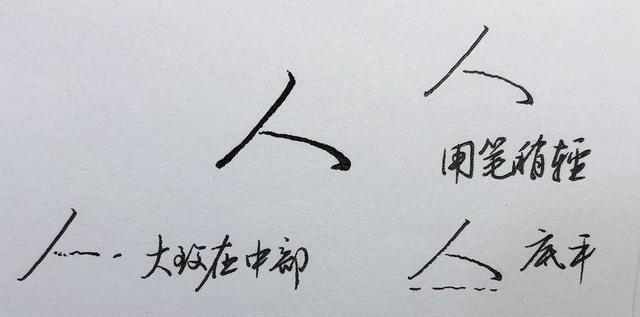 人
人
用笔稍輕
大致在中部
人 底平